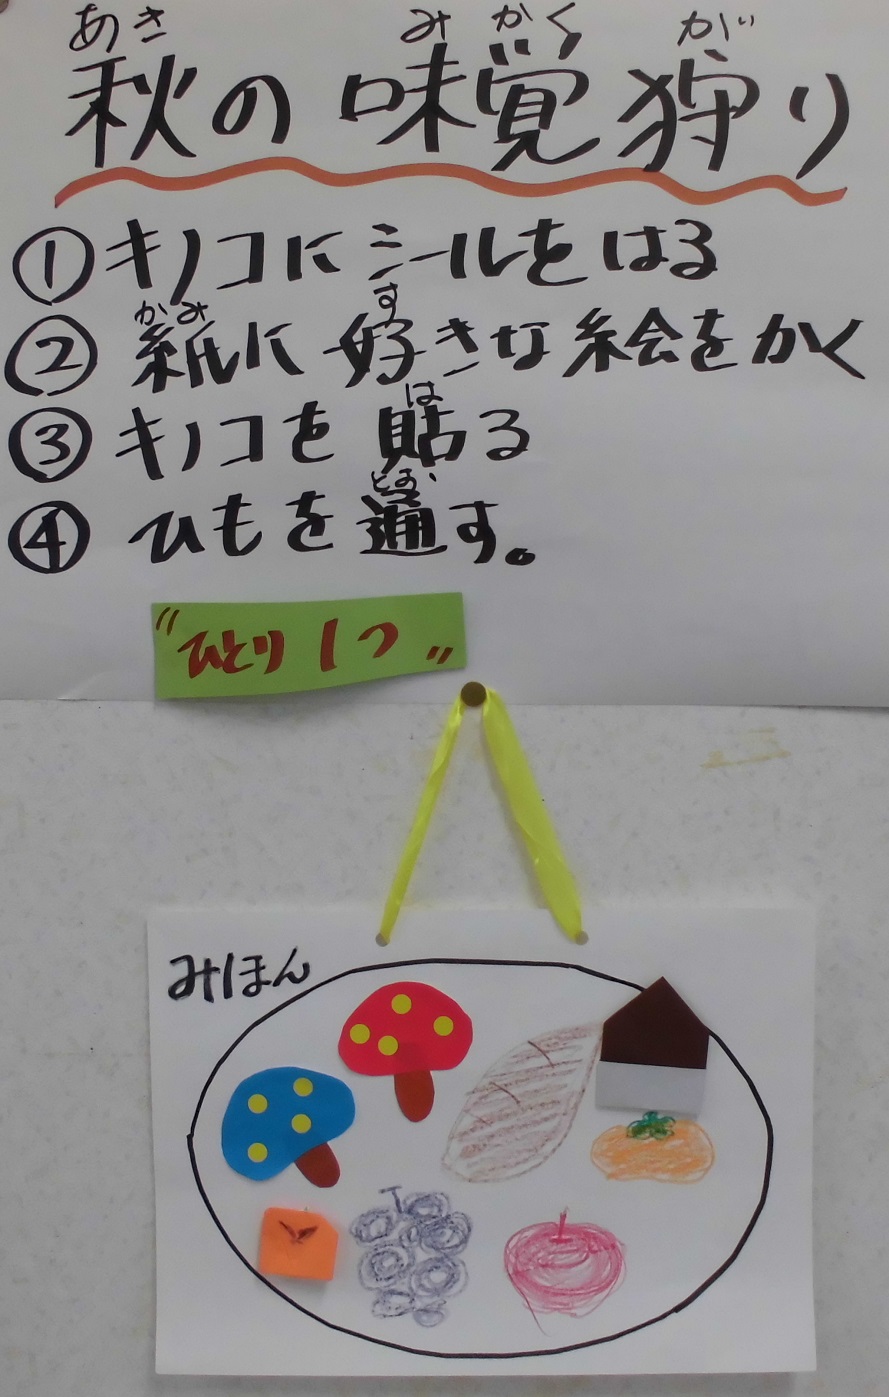 あき みかく がい
秋の味覚狩り
①キノコにシールをはる
かみ す
②紙に好きな絵をかく
は
③キノコを貼る
とお
④ひもを通す。
"ひとり1つ"
みほん